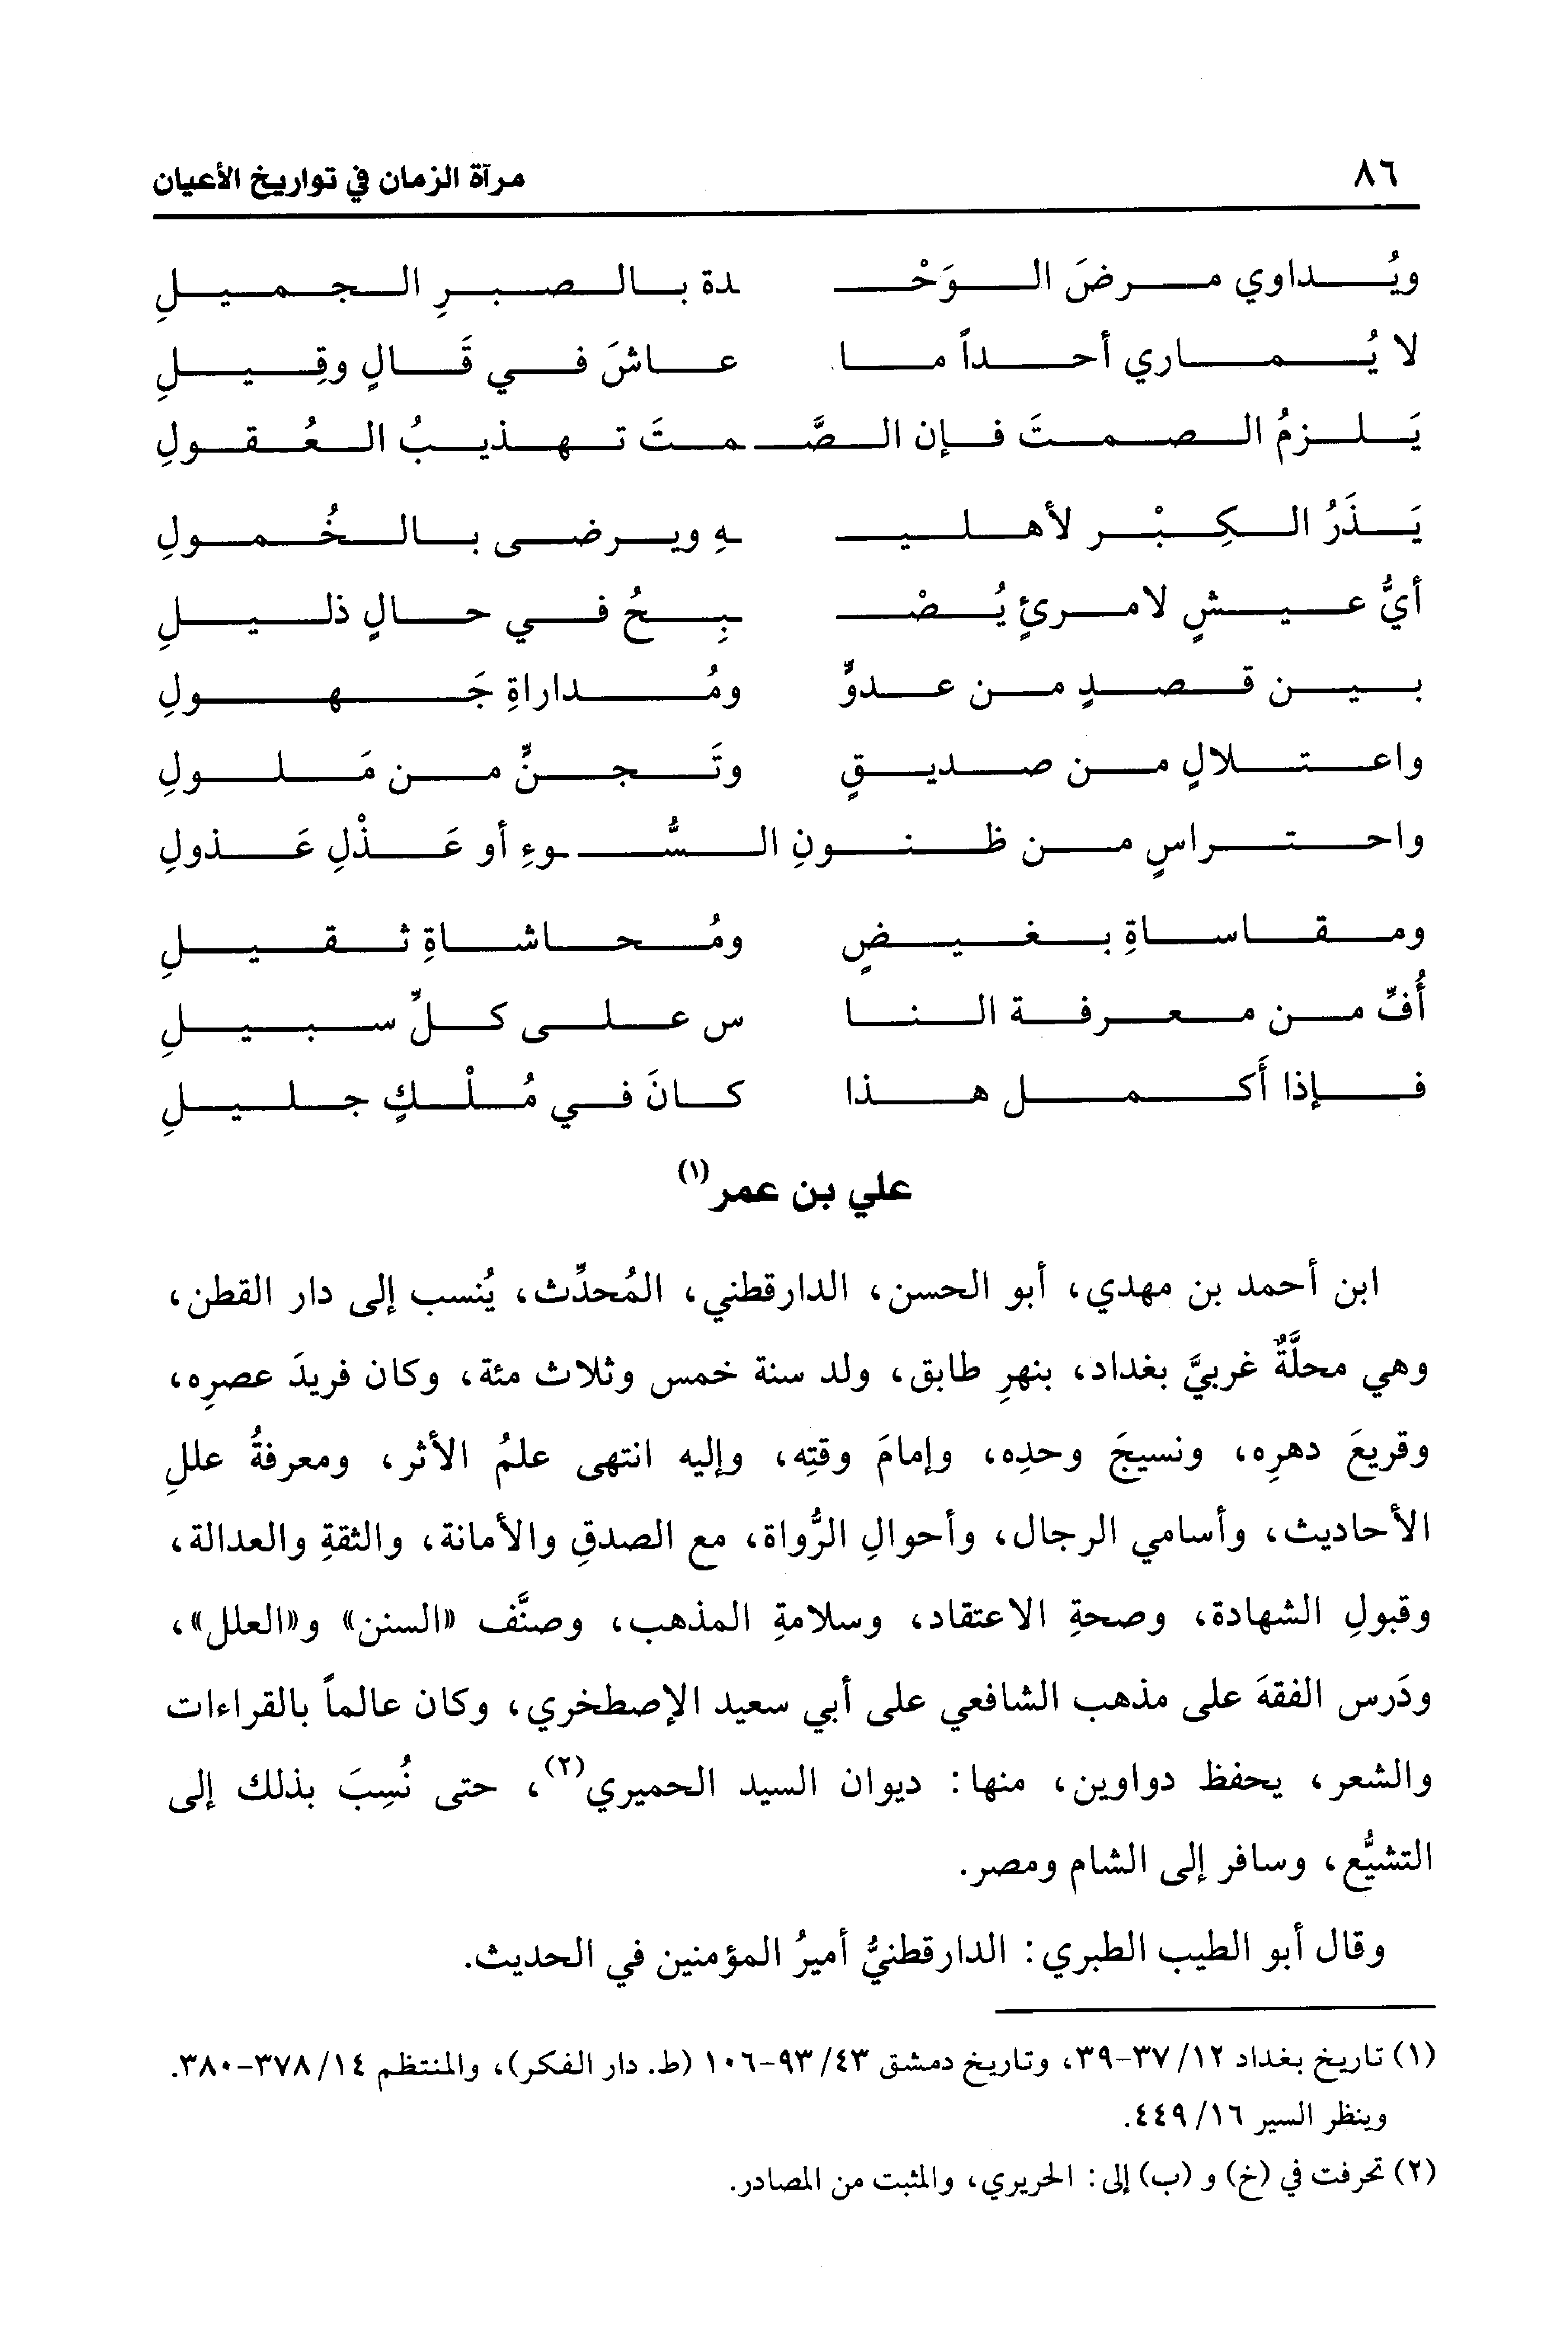 ٨٦ مرآة الزمان في تواريخ الأعيان
ويُداوي مرضَ الوَحْـ ـدة بالصبرِ الجميلِ
لا يُماري أحداً ما عاشَ في قَالٍ وقِيلِ
يَلزمُ الصمتَ فإن الصَّـ ـمتَ تهذيبُ العُقولِ
يَذَرُ الكِبْر لأهليـ ـهِ ويرضى بالخُمولِ
أيُّ عيشٍ لامرئٍ يُصْـ ـبِحُ في حالٍ ذليلِ
بين قصدٍ من عدوٍّ ومُداراةِ جَهولِ
واعتلالٍ من صديقٍ وتَجنٍّ من مَلولِ
واحتراسٍ من ظنونِ السُّـ ـوءِ أو عَذْلِ عَذولِ
ومقاساةِ بغيضٍ ومُحاشاةِ ثقيلِ
أُفِّ من معرفة النا س على كلِّ سبيلِ
فإذا أَكمل هذا كانَ في مُلْكٍ جليلِ
علي بن عمر(١)
ابن أحمد بن مهدي، أبو الحسن، الدارقطني، المُحدِّث، يُنسب إلى دار القطن،
وهي محلَّةٌ غربيَّ بغداد، بنهرِ طابق، ولد سنة خمس وثلاث مئة، وكان فريدَ عصرِه،
وقريعَ دهرِه، ونسيجَ وحدِه، وإمامَ وقتِه، وإليه انتهى علمُ الأثر، ومعرفةُ عللِ
الأحاديث، وأسامي الرجال، وأحوالِ الرُّواة، مع الصدقِ والأمانة، والثقةِ والعدالة،
وقبولِ الشهادة، وصحةِ الاعتقاد، وسلامةِ المذهب، وصنَّف «السنن» و«العلل»،
ودَرس الفقهَ على مذهب الشافعي على أبي سعيد الإصطخري، وكان عالماً بالقراءات
والشعر، يحفظ دواوين، منها: ديوان السيد الحميري(٢)، حتى نُسِبَ بذلك إلى
التشيُّع، وسافر إلى الشام ومصر.
وقال أبو الطيب الطبري: الدارقطنيُّ أميرُ المؤمنين في الحديث.
(١) تاريخ بغداد ١٢/ ٣٧-٣٩، وتاريخ دمشق ٤٣/ ٩٣-١٠٦ (ط. دار الفكر)، والمنتظم ١٤/ ٣٧٨-٣٨٠.
وينظر السير ١٦/ ٤٤٩.
(٢) تحرفت في (خ) و (ب) إلى: الحريري، والمثبت من المصادر.